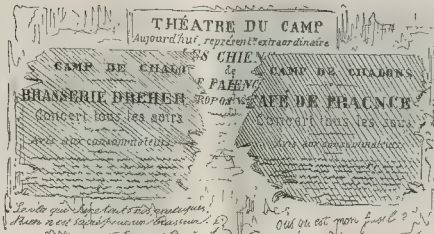 THÉATRE DU CAMP
Aujourd'hui, représent.on extraordinaire
CHIEN
de
FAIENC
CAMP DE CHALO
BRASSERIE DREHER
Concert tous les soirs
Avis aux consommateurs
CAMP DE CHALONS
AFÉ DE FRACNCE
Concert tous les soirs
Avis aux consommateurs
qui
tout
nos
Rien n'est sacré pour un
Ous qu'est mon fusil ?